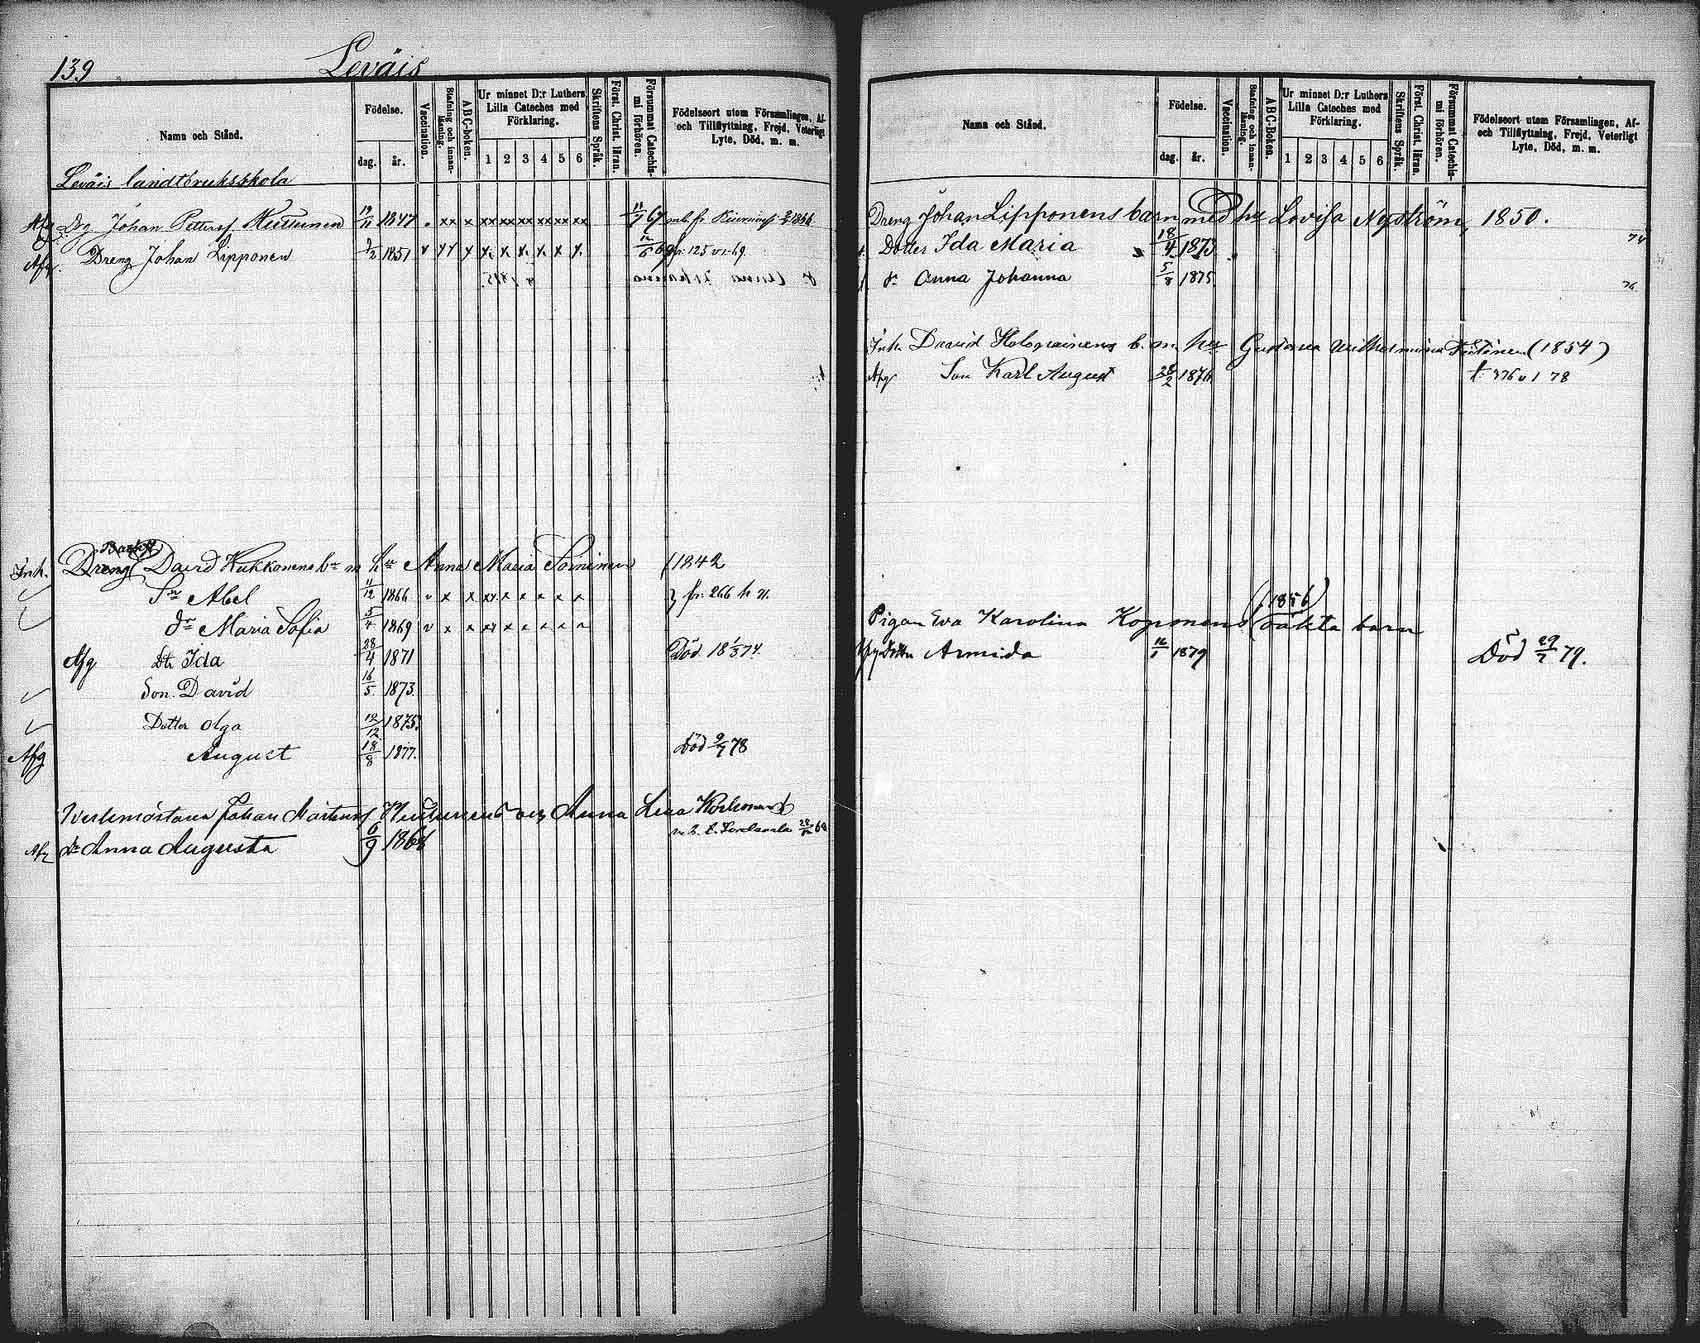 139 Leväis
Namn och Stånd.
Födelse.
dag. år.
Vaccination.
Stafning och innanläsning.
ABC-boken.
Ur minnet D:r Luthers Lilla Cateches med Förklaring.
1 2 3 4 5 6
Skriftens Språk.
Först. Christ. läran.
Försummat Catechismi förhören.
Födelseort utom Församlingen, Af- och Tillflyttning, Frejd, Veterligt Lyte, Död, m. m.
Leväis landtbruksskola
Drg Johan Petterss 19/11 1847 xx x xx xx xx xx xx xx 11/7 67
Afg. Dreng Johan Lipponen 2/2 1851 v x x x x x x x 12/6 69 fr. 125 v. 1. 69.
Inh. Dreng David Kukkonens b:n m h:u Anna Maria (1842
S:n Abel 11/12 1866 v x x xx x x x x x fr. 266 h 71.
d:r Maria Sofia 5/4 1869 v x x xx x x x x x
Afg Dtr Ida 28/4 1871 Död 18 1/3 74.
Son David 16/5 1873.
Dotter Olga 12/12 1875.
Afg August 18/8 1877. Död 9/7 78
Johan Mårtenss Anna Lena
Afg dr Anna Augusta 6/9 1868
Namn och Stånd.
Födelse.
dag. år.
Vaccination.
Stafning och innanläsning.
ABC-Boken.
Ur minnet D:r Luthers Lilla Cateches med Förklaring.
1 2 3 4 5 6
Skriftens Språk.
Först. Christ. läran.
Försummat Catechismi förhören.
Födelseort utom Församlingen, Af- och Tillflyttning, Frejd, Veterligt Lyte, Död, m. m.
Dreng Johan Lipponens barn med hu Lovisa Nyström, 1850.
Dotter Ida Maria 18/4 1873 74
dr Anna Johanna 5/8 1875 76
Inh. David Holopainens b. m. hu Gustava Wilhelmina (1854)
Afg Son Karl August 28/2 1876 376 v 1 78
Pigan Eva Karolina Koponens (1856) oäkta barn
Afg Dotter Armida 12/1 1879 Död 29/7 79.